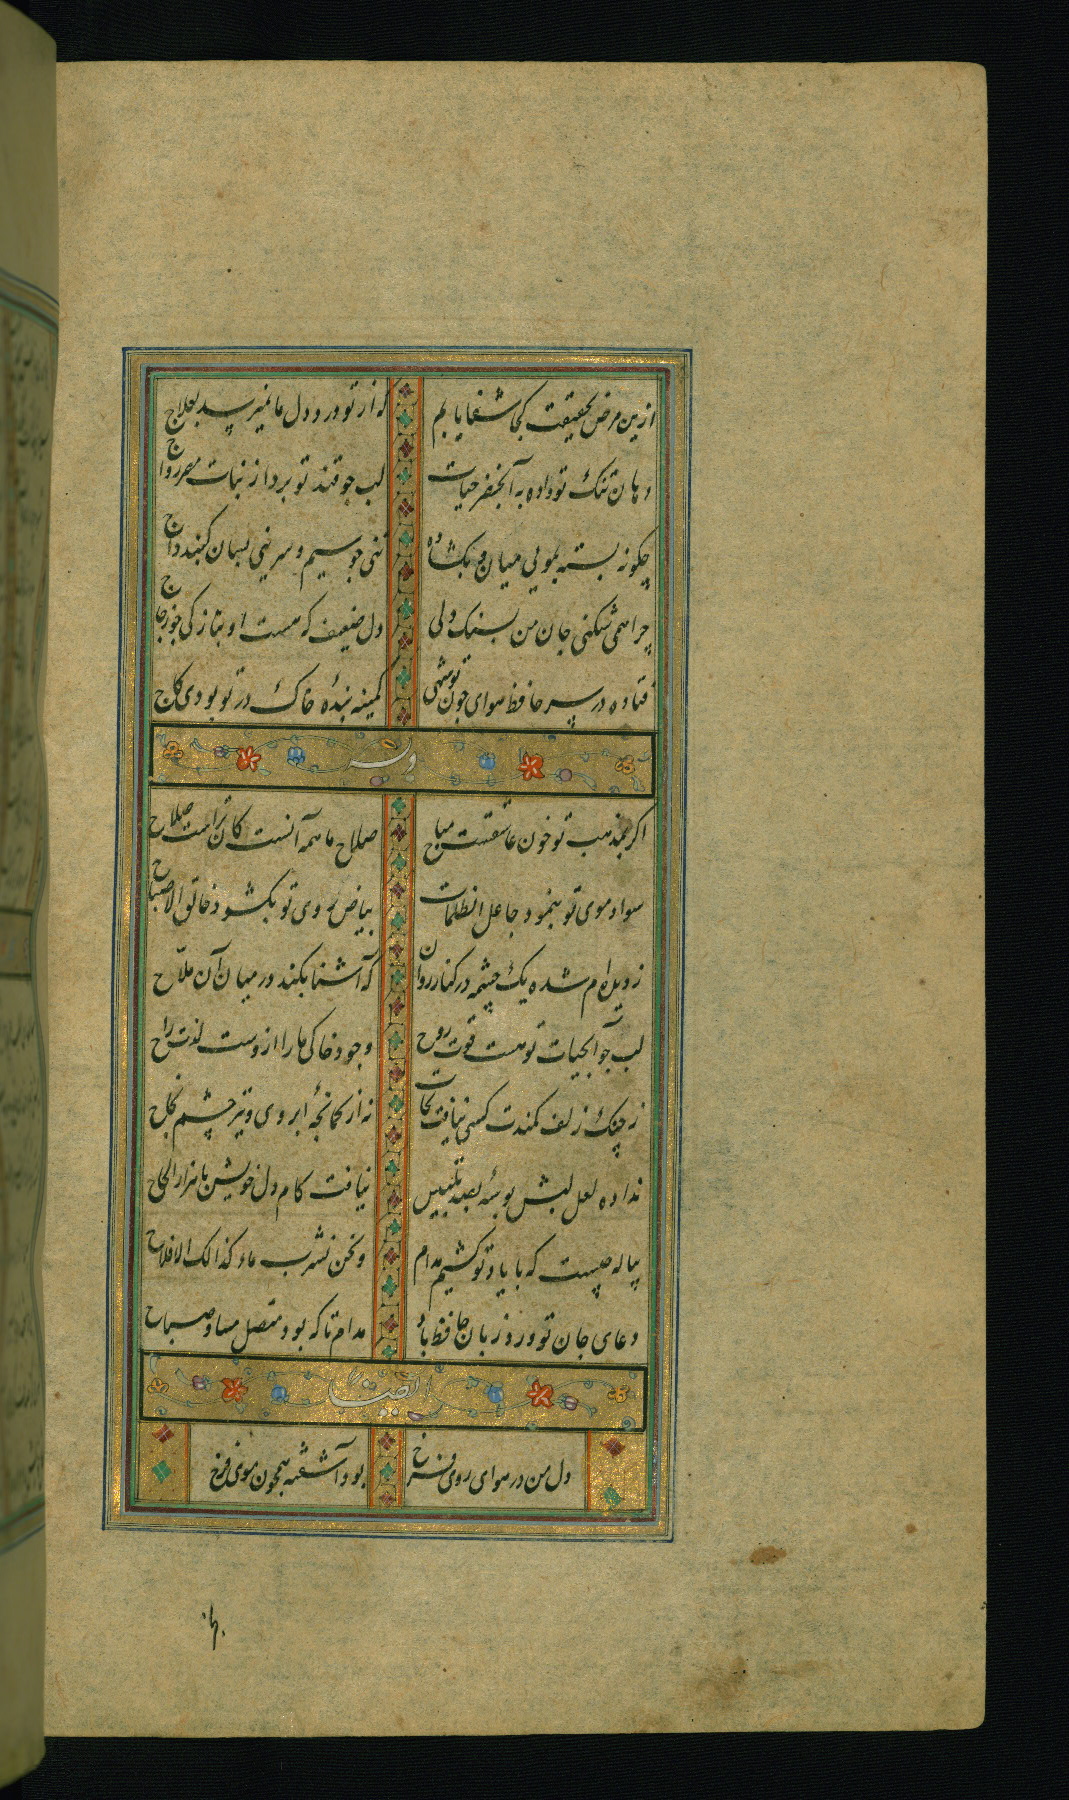 ازین مرض بحقیقت کجا شفا یابم که از تو درد دل ما نمیرسد بعلاج
دهان تنک تو داده به آبخضر حیات لب چو قند تو برد از نبات مصر رواج
چکونه بسته بمویی میان و بکشاده تنی چو سیم و سرینی بسان کنبد داج
چرا همی شکنی جان من بسنک دلی دل ضعیف که هست او بنازکی چو زجاج
فتاده در سر حافظ هوای چون تو شهی کمینه بندهٔ خاک در تو بودی کاج
وله
اکر بمذهب تو خون عاشقست مباح صلاح ما همه آنست کان تراست صلاح
سواد موی تو بنمود جاعل الظلمات بیاض روی تو بکشود خالق الاصباح
ز دیده‌ام شده یک چشمه در کنار روان که آشنا نکند در میان آن ملاح
لب چو آبحیات تو هست قوت روح وجود خاکی ما را ازوست لذت راح
ز چنک زلف کمندت کسی نیافت نجات نه از کمانچهٔ ابروی و تیر چشم نجاح
نداده لعل لبش بوسهٔ بصد تلبیس نیافت کام دل خویش با هزار الحاح
پیاله چیست که با یاد تو کشیم مدام و نحن نشرب ماء کذالک الافلاح
دعای جان تو ورد زبان حافظ باد مدام تا که بود متصل مسا و صباح
ایضا
دل من در هوای روی فرخ بود آشفته همچون موی فرخ